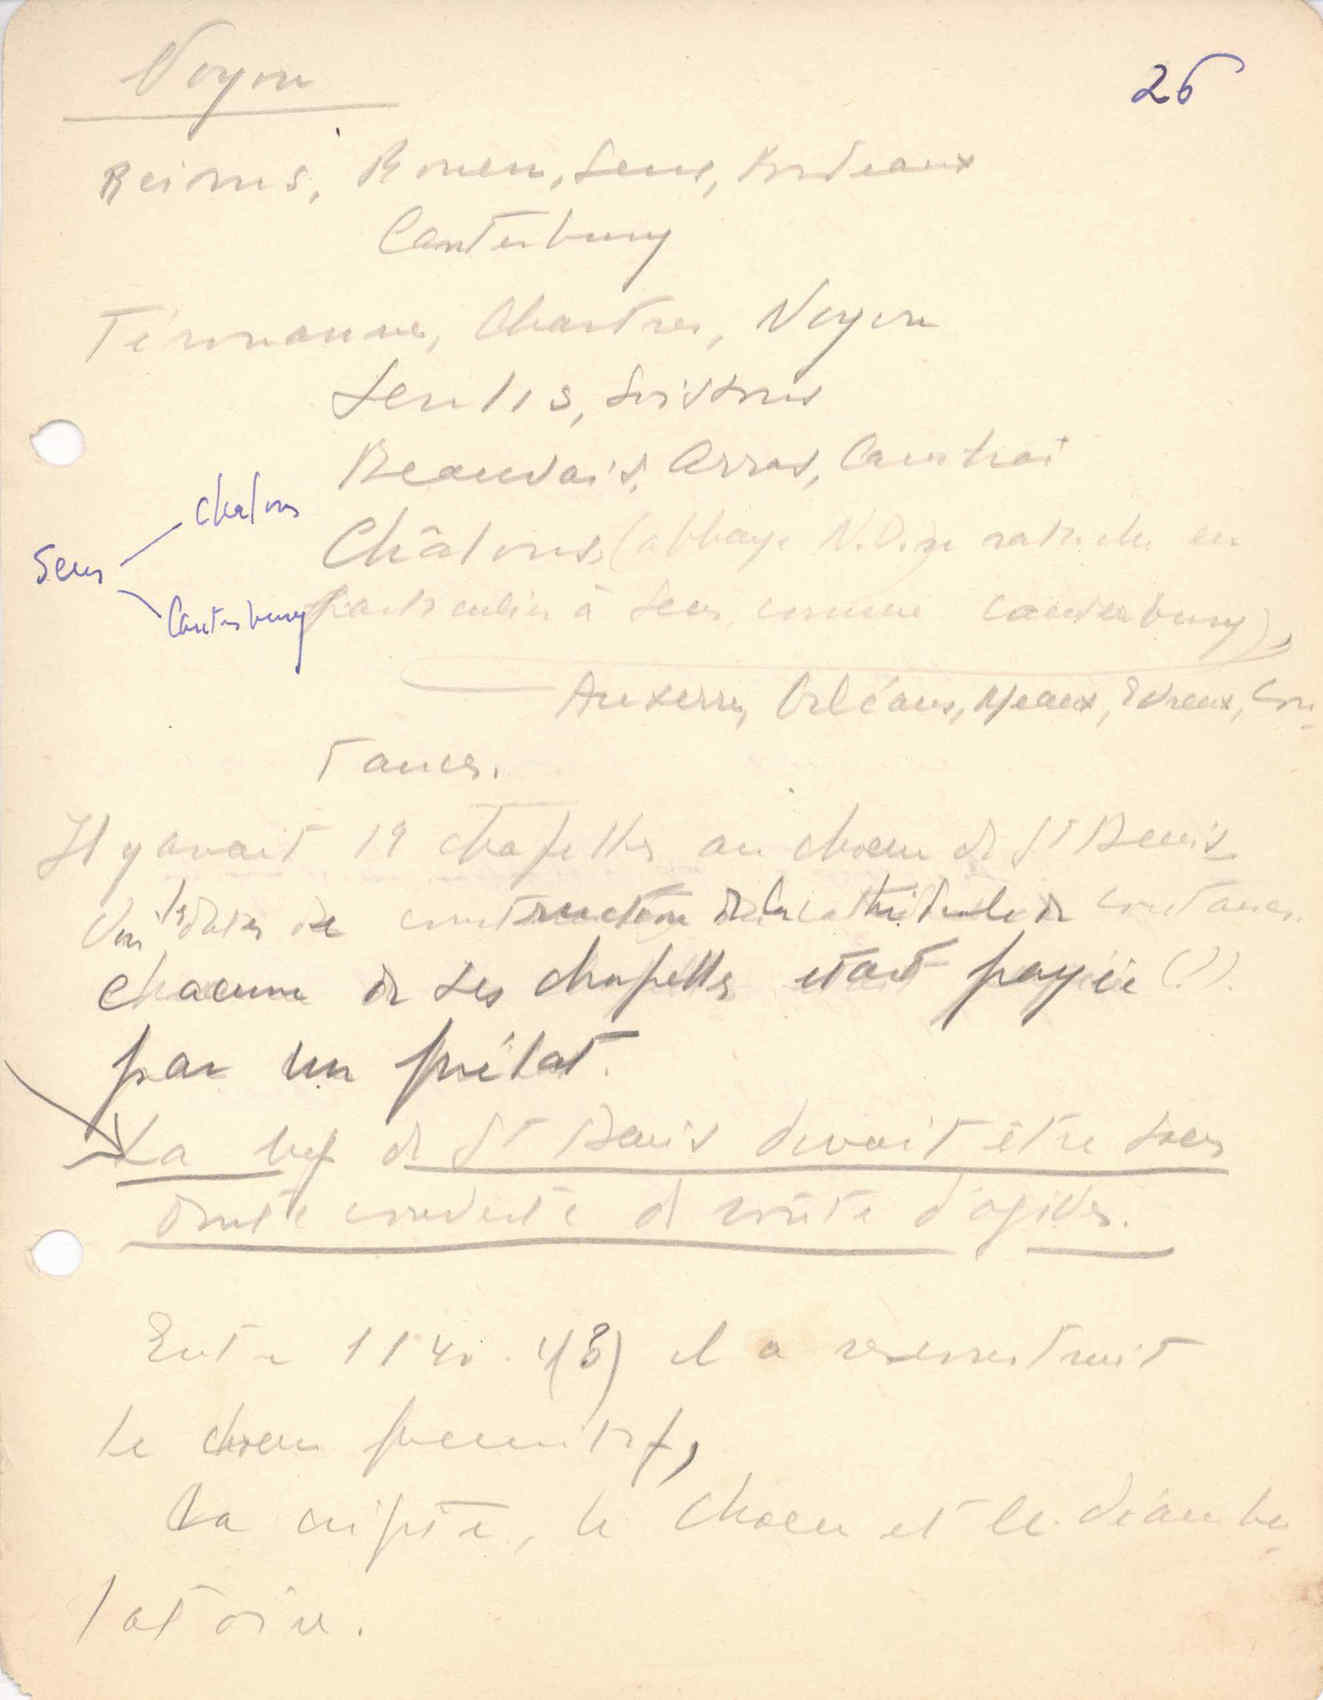 Noyon
26
Reims, Rouen, Sens, Bordeaux
Canterbury
Térouanne, Chartres, Noyon
Senlis, Soissons
Beauvais, Arras, Cambrai
Châlons, (abbaye N.D. en
particulier à Sens, comme Canterbury),
Sens
Chalons
Canterbury
Auxerre, Orléans, Meaux, Evreux, Cou-
tances.
Il y avait 19 chapelles au choeur de St Denis
Voir les dates de construction de la cathédrale de Coutances.
chacune de ses chapelles était payée (?).
par un prélat.
La nef de St Denis devait être sans
doute couverte de voûte d'ogives.
Entre 1140. 4(3) il a reconstruit
le choeur primitif,
La cripte, le choeur et le déambu-
latoire.